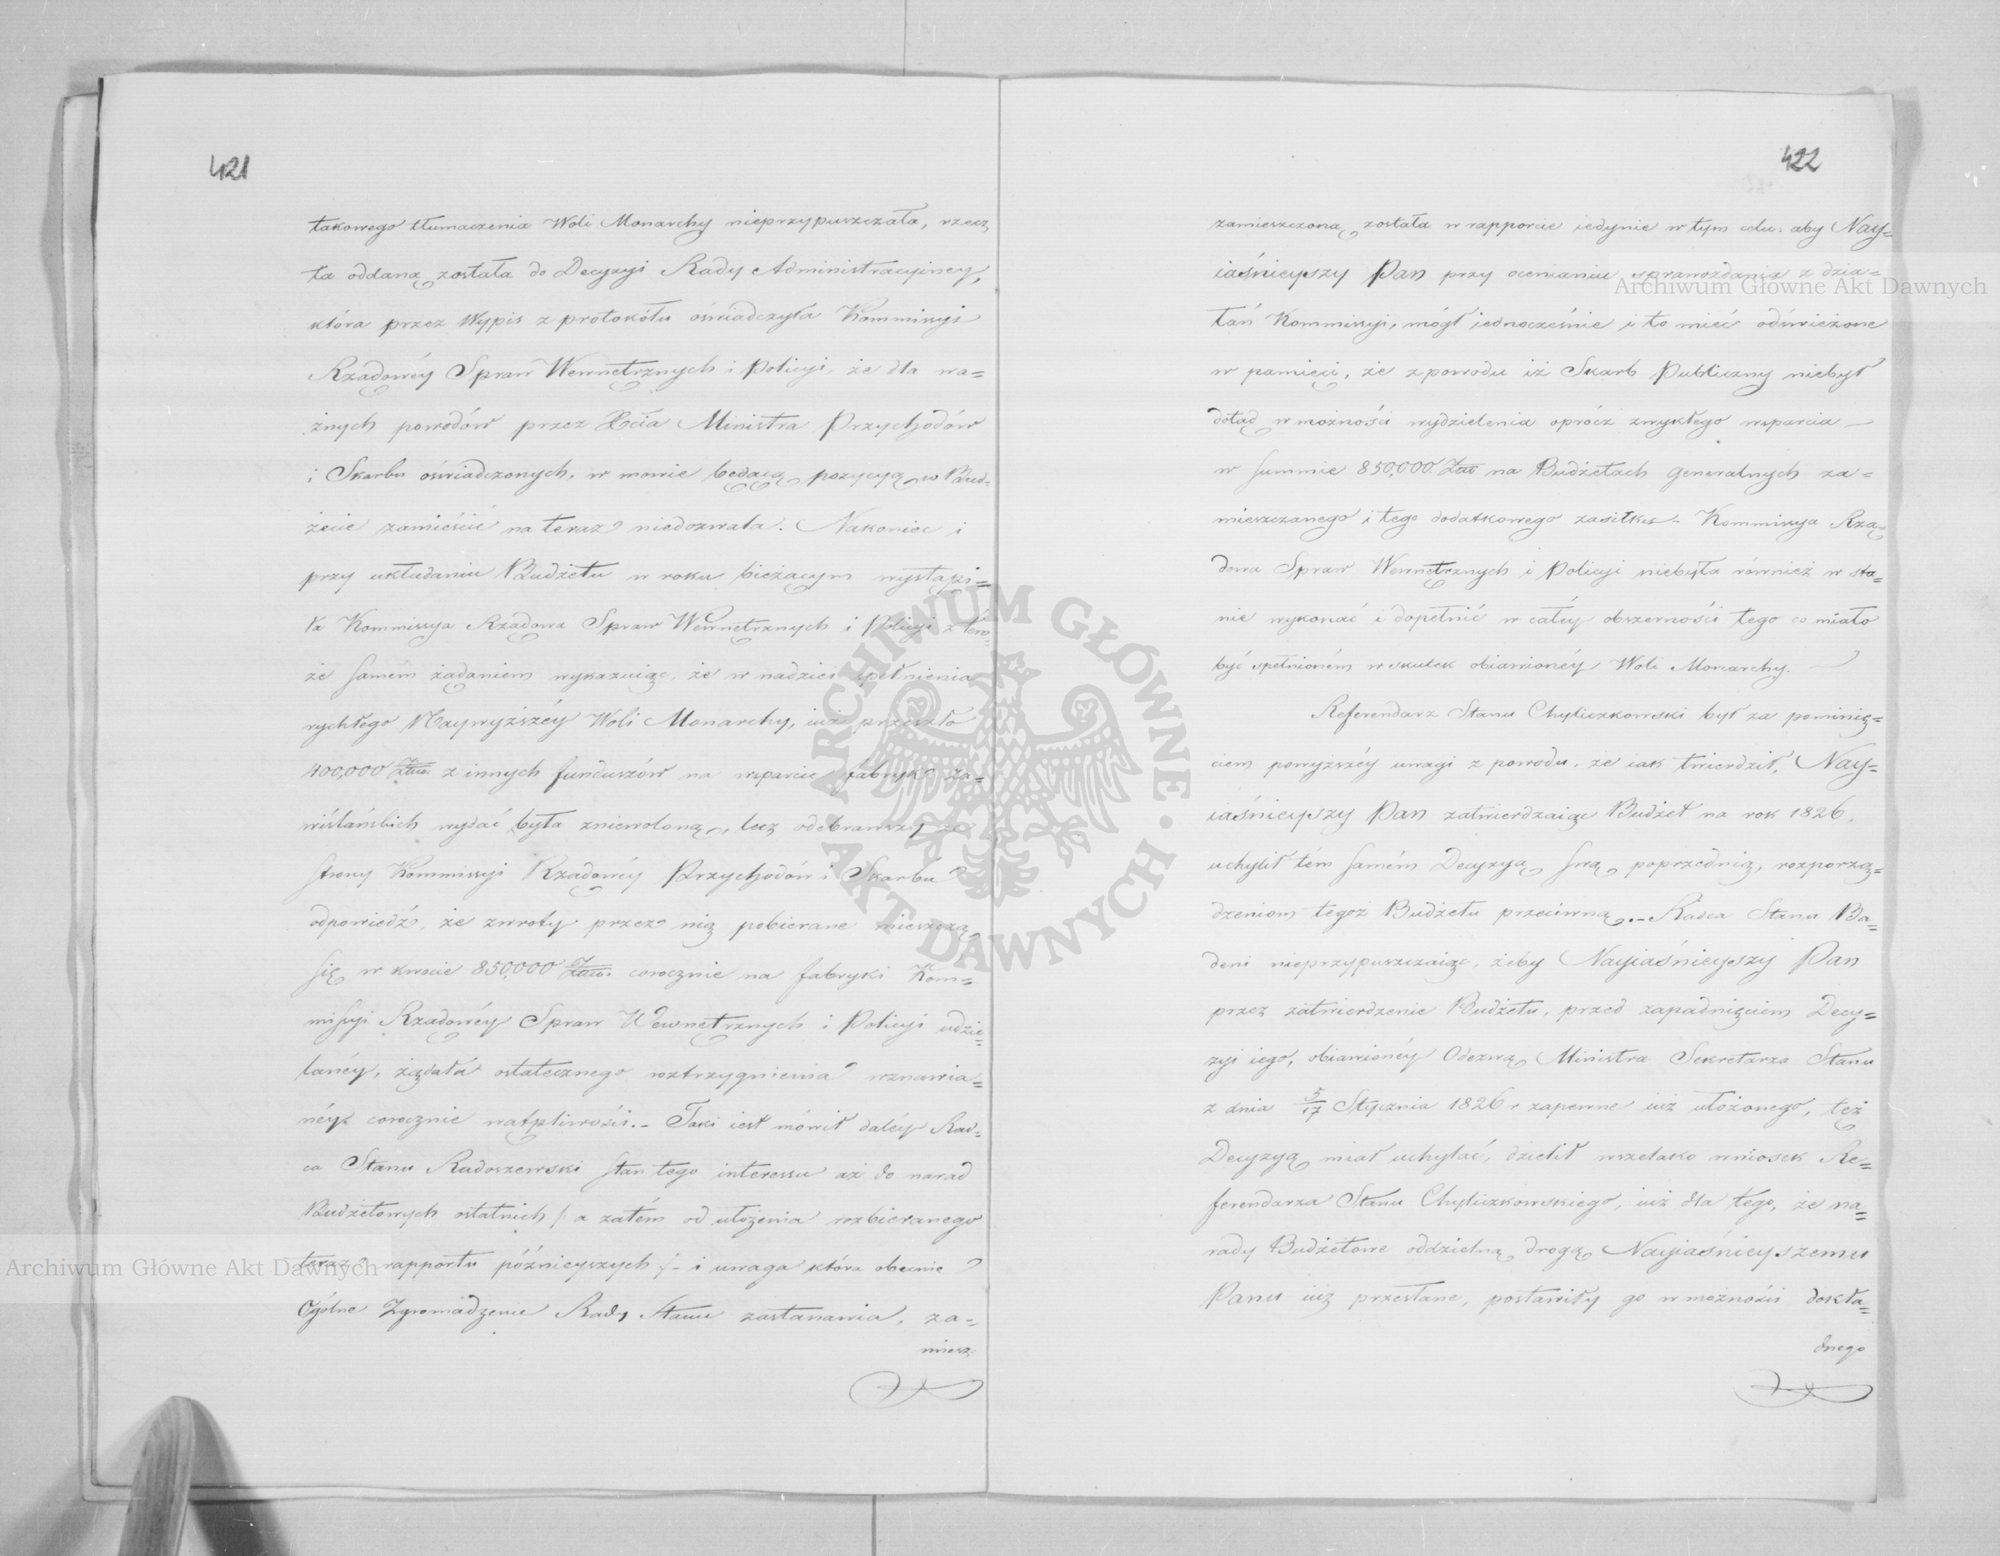 421
takowego tłumaczenia Woli Monarchy nieprzypuszczała, rzecz
ta oddaną została do Decyzyi Rady Administracyiney,
która przez Wypis z protokółu oświadczyła Kommissyi
Rządowéy Spraw Wewnętrznych i Policyi, że dla wa=
żnych powodów przez Xcia Ministra Przychodów
i Skarbu oświadczonych, w mowie będącą pozycyą w Bud=
żecie zamieścić na teraz niedozwala. Nakoniec i
przy układaniu Budżetu w roku bieżącym wystąpi=
ła Kommissya Rządowa Spraw Wewnętrznych i Policyi z tém
że samém żądaniem wykazuiąc, że w nadziei spełnienia
rychłego Naywyższéy Woli Monarchy, iuż przeszło
400,000 Złłł. z innych funduszów na wsparcie fabryk za=
wiślańskich wydać była zniewoloną, lecz odebrawszy ze
strony Kommissyi Rządowéy Przychodów i Skarbu
odpowiedź, że zwroty przez nią pobierane mieszczą
się w kwocie 850,000 Złłł. corocznie na fabryki Kom=
missyi Rządowéy Spraw Wewnętrznych i Policyi udzie=
lanéy, żądała ostatecznego roztrzygnienia wznawia=
néy corocznie wątpliwości. – Taki iest mówił daléy Rad=
ca Stanu Radoszewski stan tego interessu aż do narad
Budżetowych ostatnich /: a zatém od ułożenia rozbieranego
teraz rapportu późnieyszych :/ – i uwaga która obecnie
Ogólne Zgromadzenie Rady Stanu zastanawia, za=
miesz
422
zamieszczoną została w rapporcie iedynie w tym celu, aby Nay=
iaśnieyszy Pan przy ocenianiu sprawozdania z dzia=
łań Kommissyi, mógł iednocześnie i to mieć odświeżone
w pamięci, że z powodu iż Skarb Publiczny niebył
dotąd w możności wydzielenia oprócz zwykłego wsparcia —
w summie 850,000 Złł na Budżetach generalnych za=
mieszczanego i tego dodatkowego zasiłku – Kommissya Rzą=
dowa Spraw Wewnętrznych i Policyi niebyła również w sta=
nie wykonać i dopełnić w całéy obszerności tego co miało
być spełnioném w skutek obiawionéy Woli Monarchy. —
Referendarz Stanu Chyliczkowski był za pominię=
ciem powyższéy uwagi z powodu, że iak twierdził, Nay=
iaśnieyszy Pan zatwierdzaiąc Budżet na rok 1826,
uchylił tém samém Decyzyą swą poprzednią, rozporzą=
dzeniom tegoż Budżetu przeciwną. – Radca Stanu Ba=
deni nieprzypuszczaiąc, żeby Nayiaśnieyszy Pan
przez zatwierdzenie Budżetu, przed zapadnięciem Decy=
zyi iego, obiawionéy Odezwą Ministra Sekretarza Stanu
z dnia 5/17 Stycznia 1826 r zapewne iuż ułożonego, też
Decyzyą miał uchylać, dzielił wszelako wniosek Re=
ferendarza Stanu Chyliczkowskiego, iuż dla tego, że na=
rady Budżetowe oddzielną drogą Nayiaśnieyszemu
Panu iuż przesłane, postawiły go w możności dokła=
dnego
Archiwum Główne Akt Dawnych
Archiwum Główne Akt Dawnych
ARCHIWUM GŁÓWNE • AKT DAWNYCH •